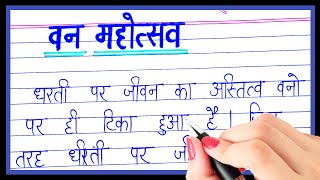 वन महोत्सव
धरती पर जीवन का अस्तित्व वनो
पर ही टिका हुआ है।
तरह धरती पर